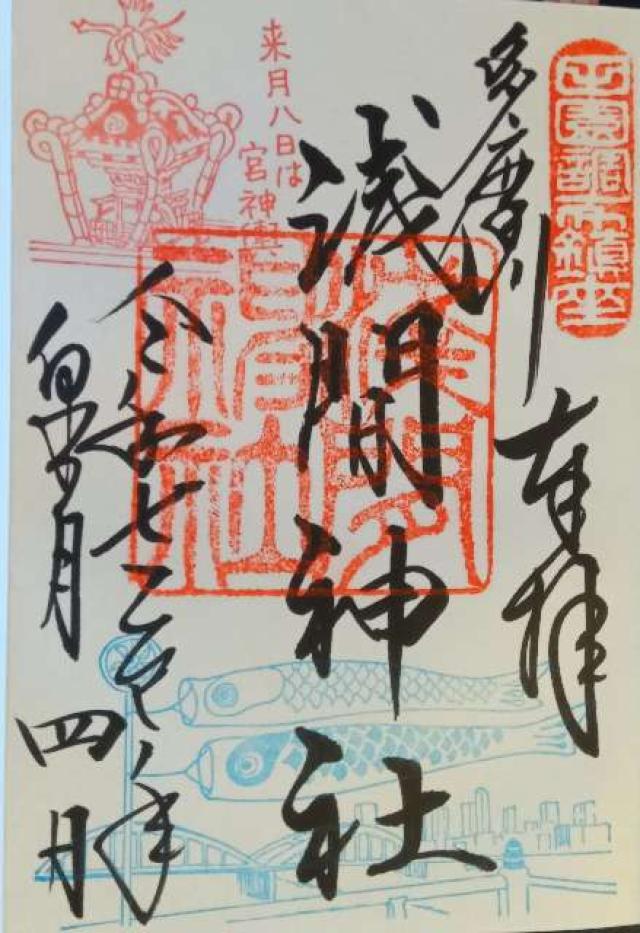 田園調布鎮座
奉拝
多摩川
浅間神社
浅間神社
来月八日は
宮神輿
令和七乙巳年
皐月四日